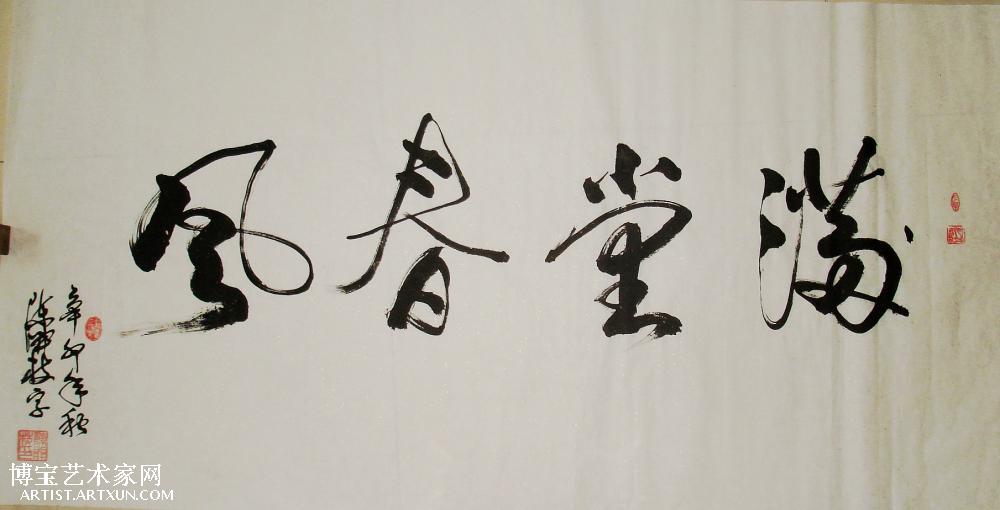 满堂春风
辛卯年秋
字
博宝艺术家网
ARTIST.ARTXUN.COM